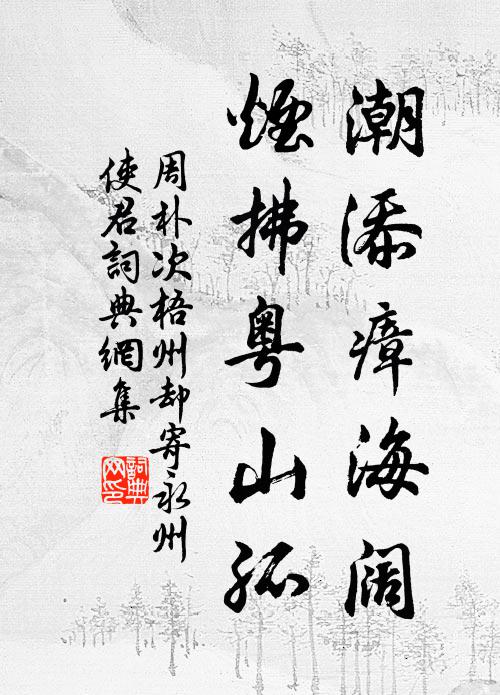 潮添瘴海阔
煙拂粤山孤
周朴次梧州却寄永州
使君詞典網集
詞典
网印